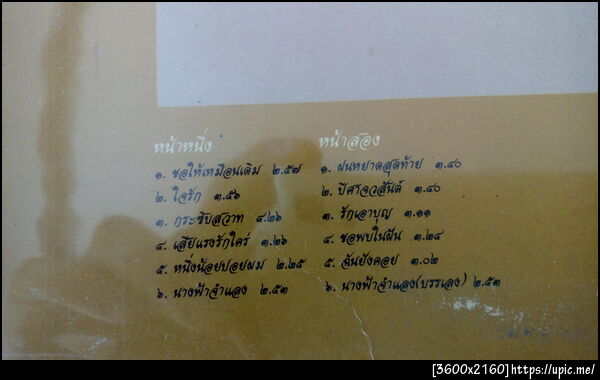 หน้าหนึ่ง
๑. ขอให้เหมือนเดิม ๒.๕๗
๒. ใจรัก ๓.๕๖
๓. กระซิบสวาท ๔.๒๖
๔. เสียแรงรักใคร่ ๓.๒๖
๕. หนึ่งน้อยปอยผม ๒.๒๕
๖. นางฟ้าจำแลง ๒.๕๓
หน้าสอง
๑. ฝนหยาดสุดท้าย ๓.๔๐
๒. ปีศาจวสันต์ ๓.๔๐
๓. รักเอาบุญ ๓.๑๑
๔. ขอพบในฝัน ๓.๒๔
๕. ฉันยังคอย ๓.๐๒
๖. นางฟ้าจำแลง(บรรเลง) ๒.๕๓
[3600x2160]https://upic.me/